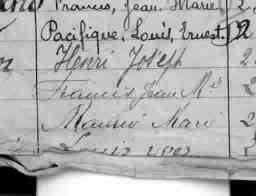 Francis, Jean Marie 2
Pacifique, Louis, Ernest, 2
Henri Joseph 2
Francis Jean M
Maurice Mari 2
Louis